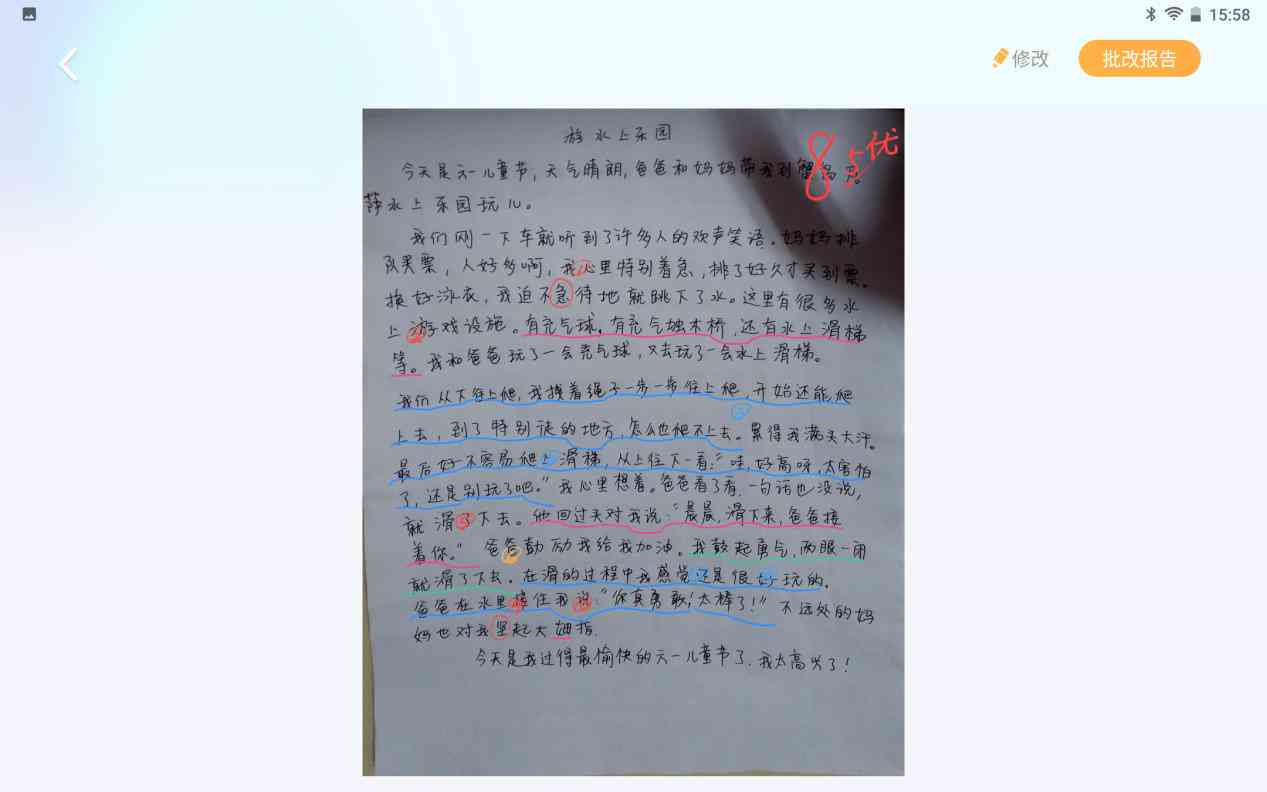 15:58
修改
批改报告
游水上乐园
85优
今天是六一儿童节，天气晴朗，爸爸和妈妈带我到蟹岛
水上乐园玩儿。
我们刚一下车就听到了许多人的欢声笑语。妈妈排
队买票，人好多啊，我心里特别着急，排了好久才买到票。
换好泳衣，我迫不急待地就跳下了水。这里有很多水
上游戏设施。有充气球，有充气独木桥，还有水上滑梯
等。我和爸爸玩了一会充气球，又去玩了一会水上滑梯。
我们从下往上爬，我拽着绳子一步一步往上爬，开始还能爬
上去，到了特别徒的地方，怎么也爬不上去。累得我满头大汗。
最后好不容易爬上滑梯，从上往下一看：“哇，好高呀，太害怕
了，还是别玩了吧。”我心里想着。爸爸看了看，一句话也没说，
就滑了下去。他回过头对我说：“晨晨，滑下来，爸爸接
着你。”爸爸鼓励我给我加油。我鼓起勇气，两眼一闭
就滑了下去。在滑的过程中我感觉还是很好玩的。
爸爸在水里接住我说：“你真勇敢！太棒了！”不远处的妈
妈也对我竖起大姆指.
今天是我过得最愉快的六一儿童节了，我太高兴了！